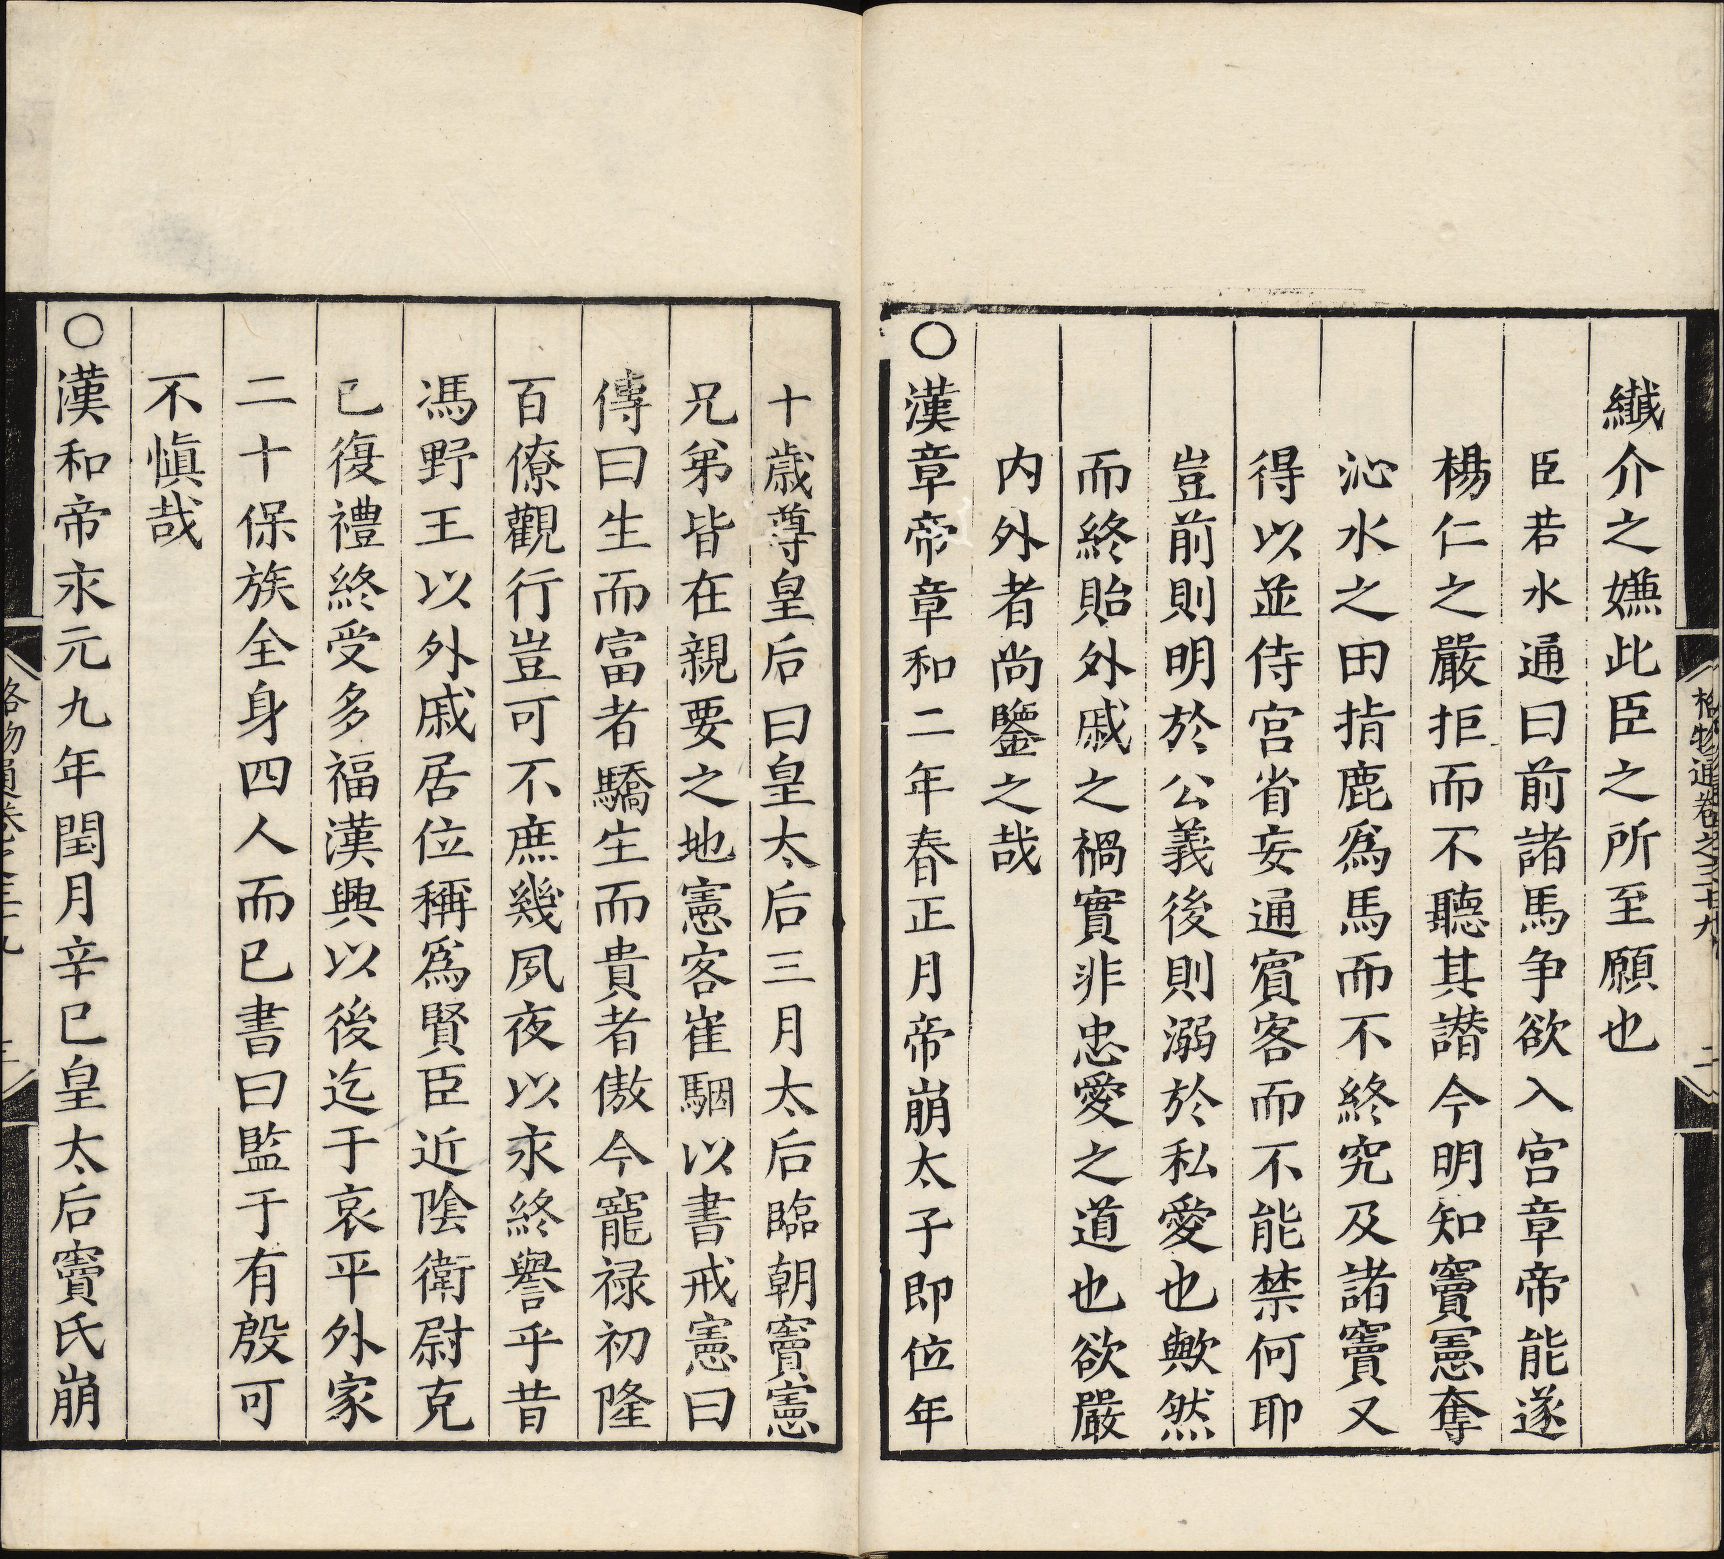 格物通卷之三十九
二
纎介之嫌此臣之所至願也
臣若水通曰前諸馬争欲入宫章帝能遂
楊仁之嚴拒而不聽其譖今明知竇憲奪
沁水之田指鹿爲馬而不終究及諸竇又
得以並侍宫省妄通賓客而不能禁何耶
豈前則明於公義後則溺於私愛也歟然
而終貽外戚之禍實非忠愛之道也欲嚴
内外者尚鑒之哉
○漢章帝章和二年春正月帝崩太子即位年
十歳尊皇后曰皇太后三月太后臨朝竇憲
兄弟皆在親要之地憲客崔駰以書戒憲曰
傳曰生而富者驕生而貴者傲今寵禄初隆
百僚觀行豈可不庶幾夙夜以永終譽乎昔
馮野王以外戚居位稱爲賢臣近陰衛尉克
已復禮終受多福漢興以後迄于哀平外家
二十保族全身四人而已書曰監于有殷可
不愼哉
○漢和帝永元九年閏月辛巳皇太后竇氏崩
格物通卷之三十九